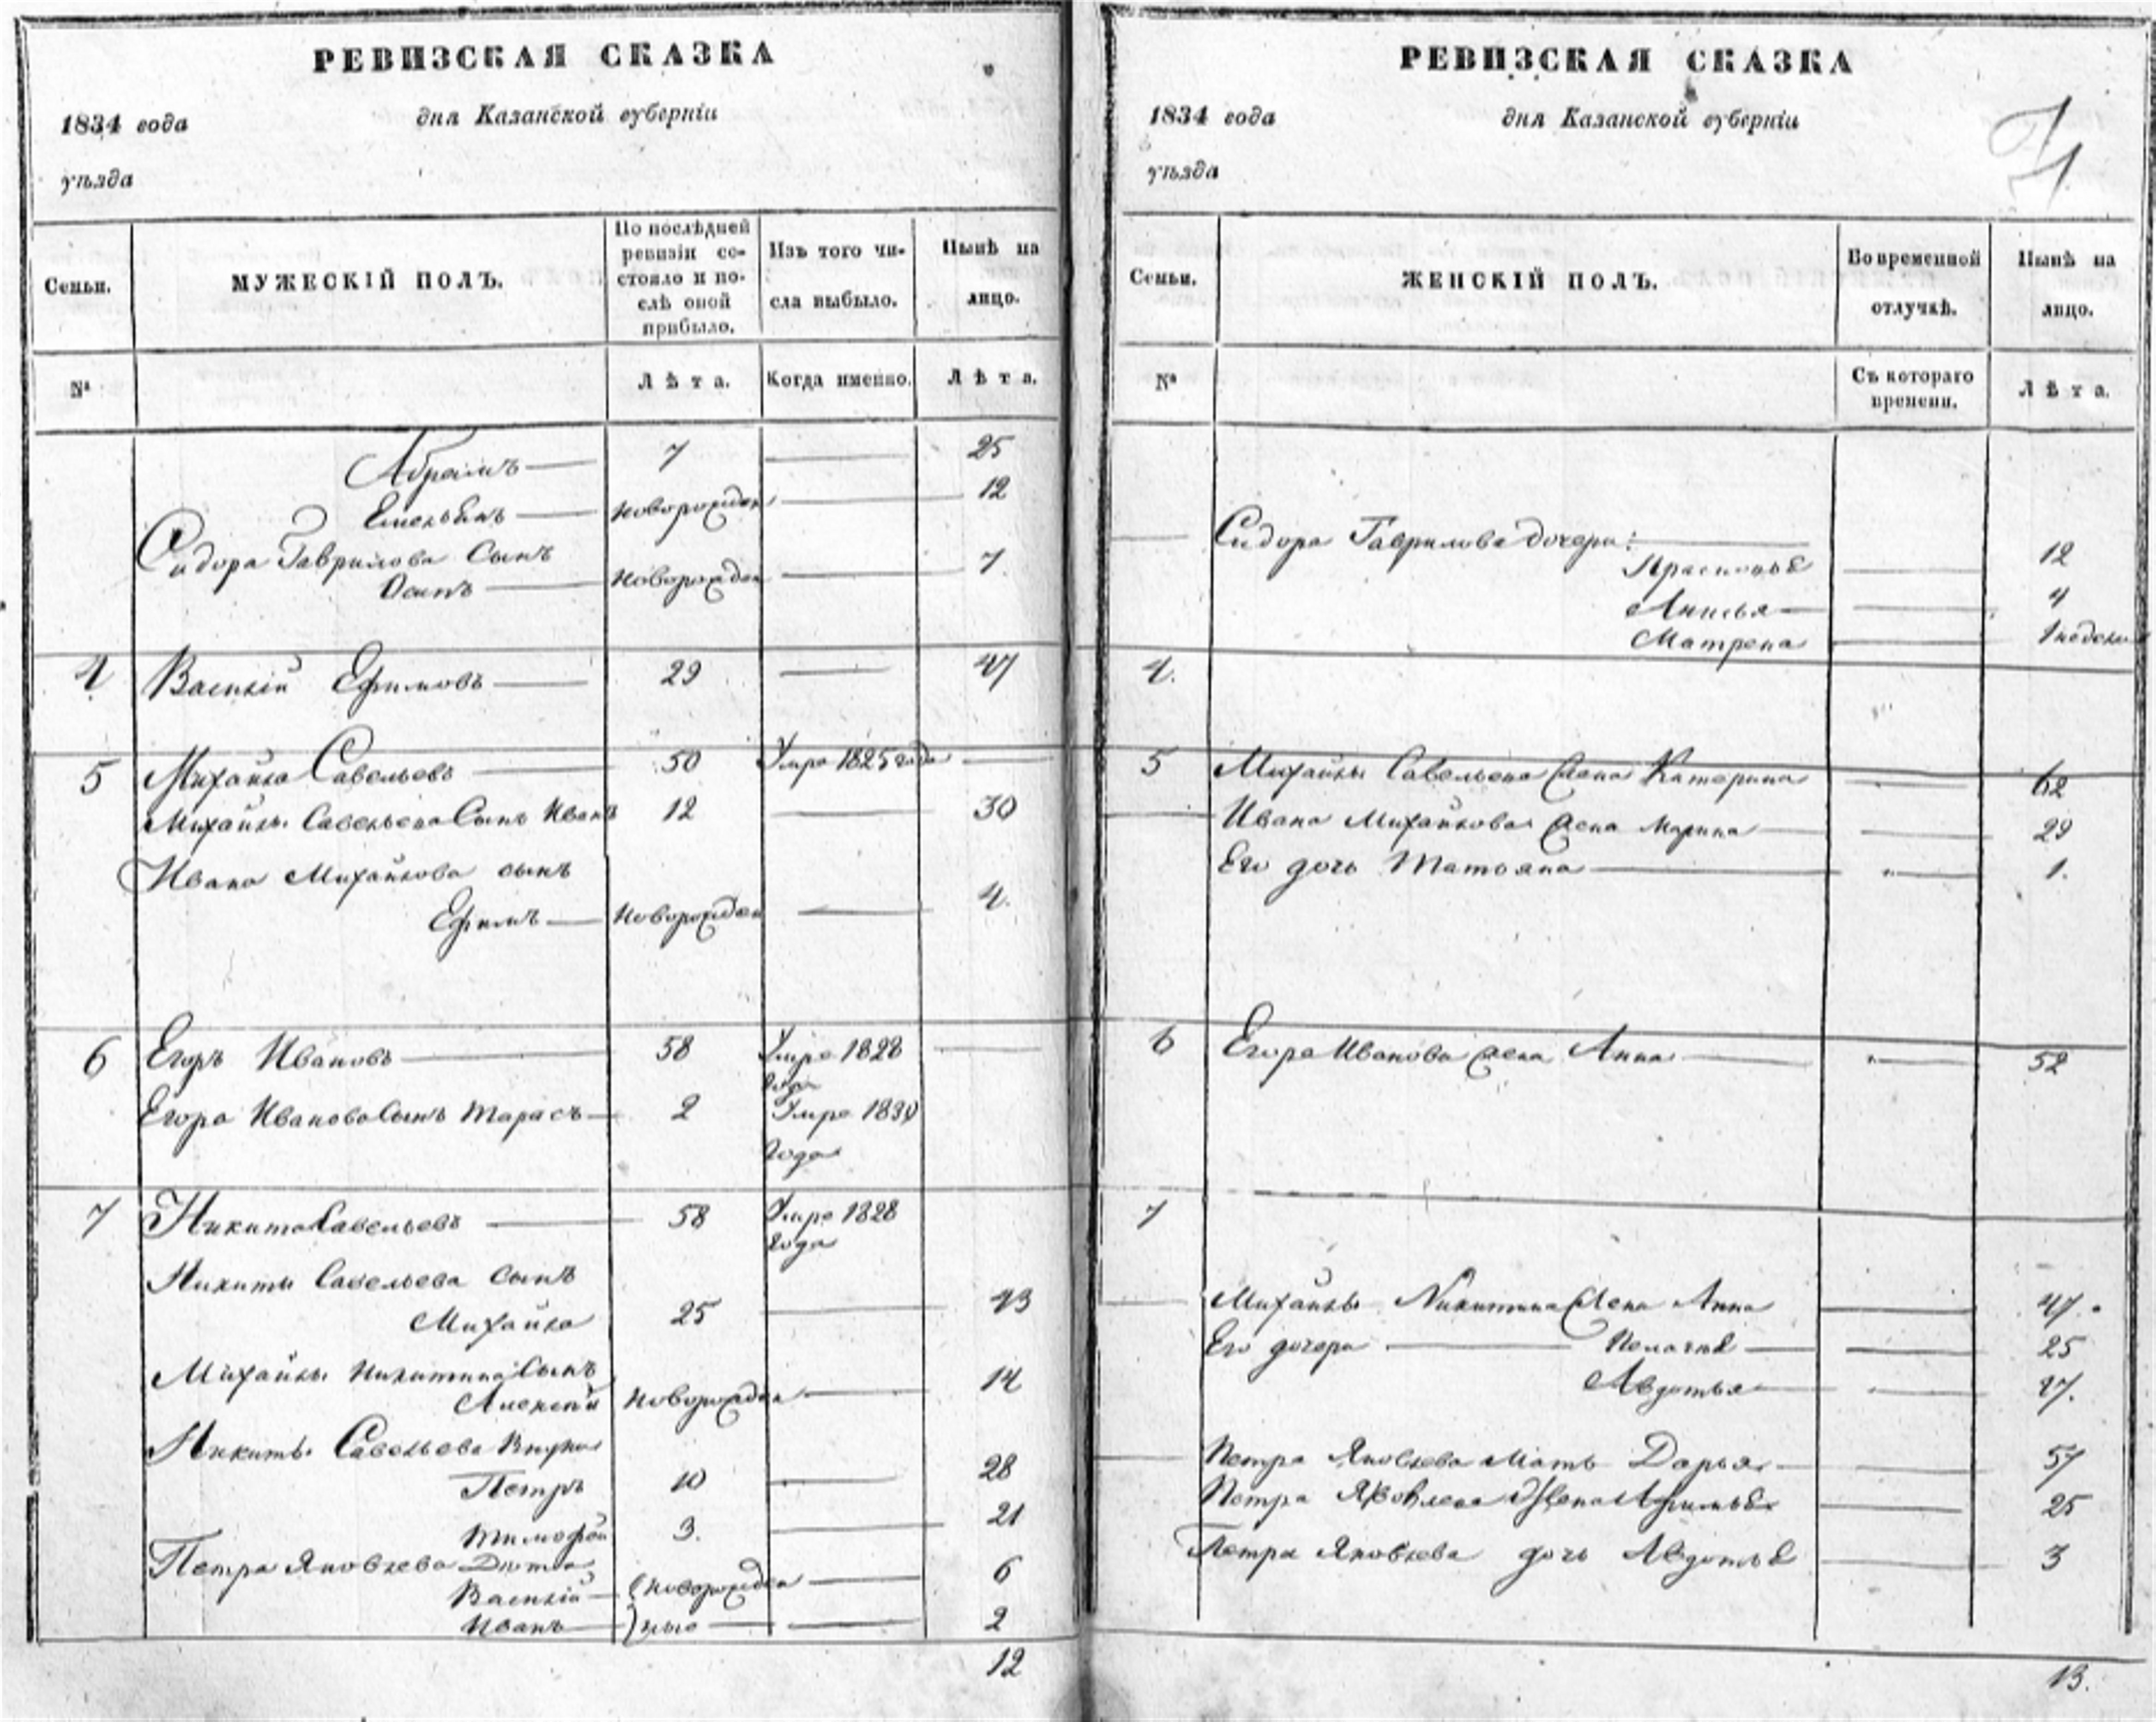 РЕВИЗСКАЯ СКАЗКА
1834 года дня Казанской губерніи
уѣзда
Семьи. МУЖЕСКІЙ ПОЛЪ. По послѣдней ревизіи состояло и послѣ оной прибыло. Изъ того числа выбыло. Нынѣ на лицо.
№ Лѣта. Когда именно. Лѣта.
Абрамъ 7 25
Емельянъ новорожден 12
Сидора Гаврилова Сынъ
Осипъ новорожден 7
4 Василій Ефимовъ 29 47
5 Михайла Савельевъ 50 Умре 1825 года
Михайлы Савельева Сынъ Иванъ 12 30
Ивана Михайлова сынъ
Ефимъ Новорожден 4
6 Егоръ Ивановъ 58 Умре 1828
года
Егора Иванова Сынъ Тарасъ 2 Умре
года
7 Никита Савельевъ 58 Умре 1828
года
Никиты Савельева сынъ
Михайла 25 43
Михайлы Никитина Сынъ
Алексѣй новорожден 14
Никиты Савельева Внуки
Петръ 10 28
Тимофей 3. 21
Петра Яковлева Дѣти
Василій новорожден 6
Иванъ ные 2
12
РЕВИЗСКАЯ СКАЗКА
1834 года дня Казанской губерніи
уѣзда
Семьи. ЖЕНСКІЙ ПОЛЪ. Во временной отлучкѣ. Нынѣ на лицо.
№ Съ котораго времени. Лѣта.
Сидора Гаврилова дочери:
12
Анисья 4
Матрена 1 недели
4.
5 Михайлы Савельева Жена Катерина 62
Ивана Михайлова Жена Марина 29
Его дочь Татьяна 1.
6 Егора Иванова Жена Анна 52
7
Михайлы Никитина Жена Анна 47.
Его дочери 25
Авдотья 17.
Петра Яковлева Мать Дарья 57
Петра Яковлева Жена 25
Петра Яковлева дочь Авдотья 3
13.